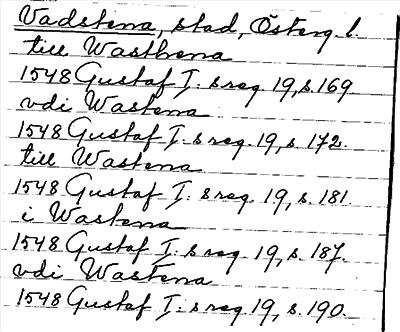 Vadstena, stad, Österg. l.
till Wasthena
1548 Gustaf I: s reg. 19, s. 169.
vdi Wastena
1548 Gustaf I: s reg. 19, s. 172.
till Wastena
1548 Gustaf I: s reg. 19, s. 181.
i Wastena
1548 Gustaf I: s reg. 19, s. 187.
vdi Wastena
1548 Gustaf I: s reg. 19, s. 190.